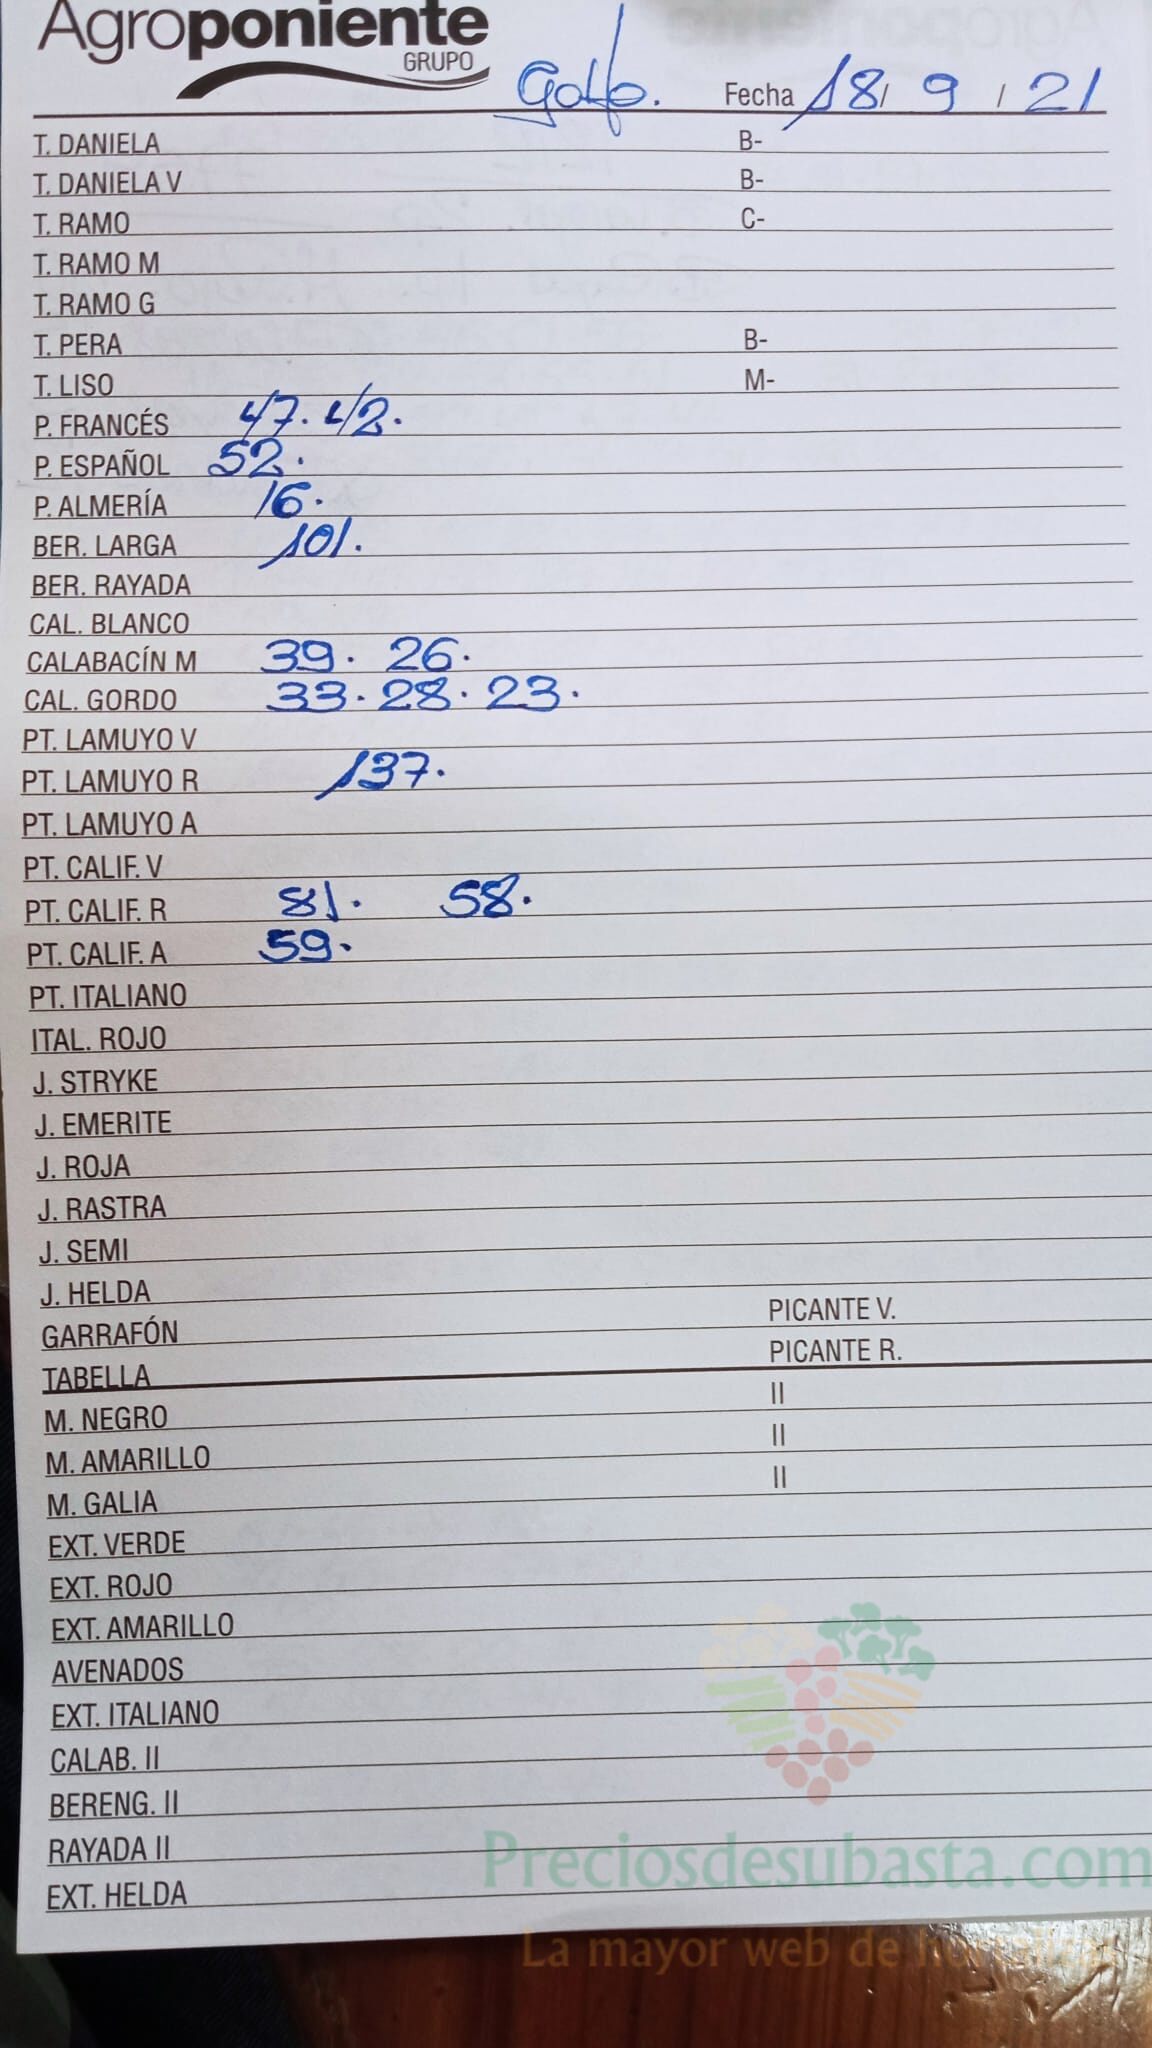 Agroponiente
GRUPO
Golfo. Fecha 18/ 9 / 21
T. DANIELA B-
T. DANIELA V B-
T. RAMO C-
T. RAMO M
T. RAMO G
T. PERA B-
T. LISO M-
P. FRANCÉS 47. 42.
P. ESPAÑOL 52.
P. ALMERÍA 16.
BER. LARGA 101.
BER. RAYADA
CAL. BLANCO
CALABACÍN M 39. 26.
CAL. GORDO 33. 28. 23.
PT. LAMUYO V
PT. LAMUYO R 137.
PT. LAMUYO A
PT. CALIF. V
PT. CALIF. R 81. 58.
PT. CALIF. A 59.
PT. ITALIANO
ITAL. ROJO
J. STRYKE
J. EMERITE
J. ROJA
J. RASTRA
J. SEMI
J. HELDA
GARRAFÓN PICANTE V.
TABELLA PICANTE R.
M. NEGRO II
M. AMARILLO II
M. GALIA II
EXT. VERDE
EXT. ROJO
EXT. AMARILLO
AVENADOS
EXT. ITALIANO
CALAB. II
BERENG. II
RAYADA II
EXT. HELDA
Preciosdesubasta.com
La mayor web de hortalizas